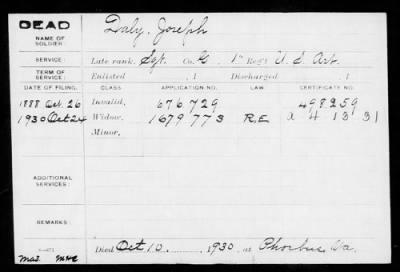 DEAD
NAME OF SOLDIER:
Daly, Joseph
SERVICE:
Late rank, Sgt. Co. G. 1st Reg't U.S. Art.
TERM OF SERVICE:
Enlisted , 1 Discharged , 1
DATE OF FILING. CLASS APPLICATION NO. LAW CERTIFICATE NO.
1888 Oct. 26 Invalid, 676729 498259
1930 Oct 24 Widow, 1679773 R.E
Minor,
ADDITIONAL SERVICES:
REMARKS:
Died Oct 10, 1930, at Phoebus, Va.